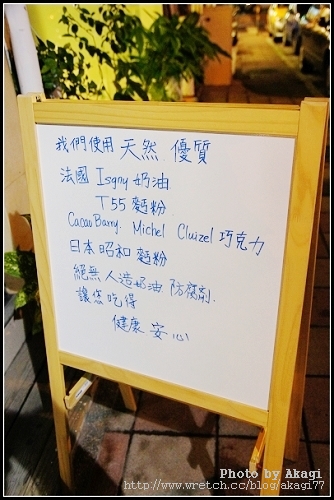 我們使用 天然 優質
法國 Isgny 奶油
T55 麵粉
Cacao Barry. Michel Cluizel 巧克力
日本昭和麵粉
絕無人造奶油 防腐劑.
讓您吃得
健康 安心
Photo by Akagi
http://www.wretch.cc/blog/akagi77